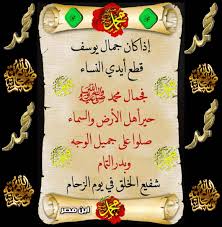 محمد
إذا كان جمال يوسف
قطع أيدي النساء
فجمال محمد ﷺ
حير أهل الأرض والسماء
صلوا على جميل الوجه
وبدر التمام
شفيع الخلق في يوم الزحام
محمد
محمد
محمد
محمد
ابن مصر